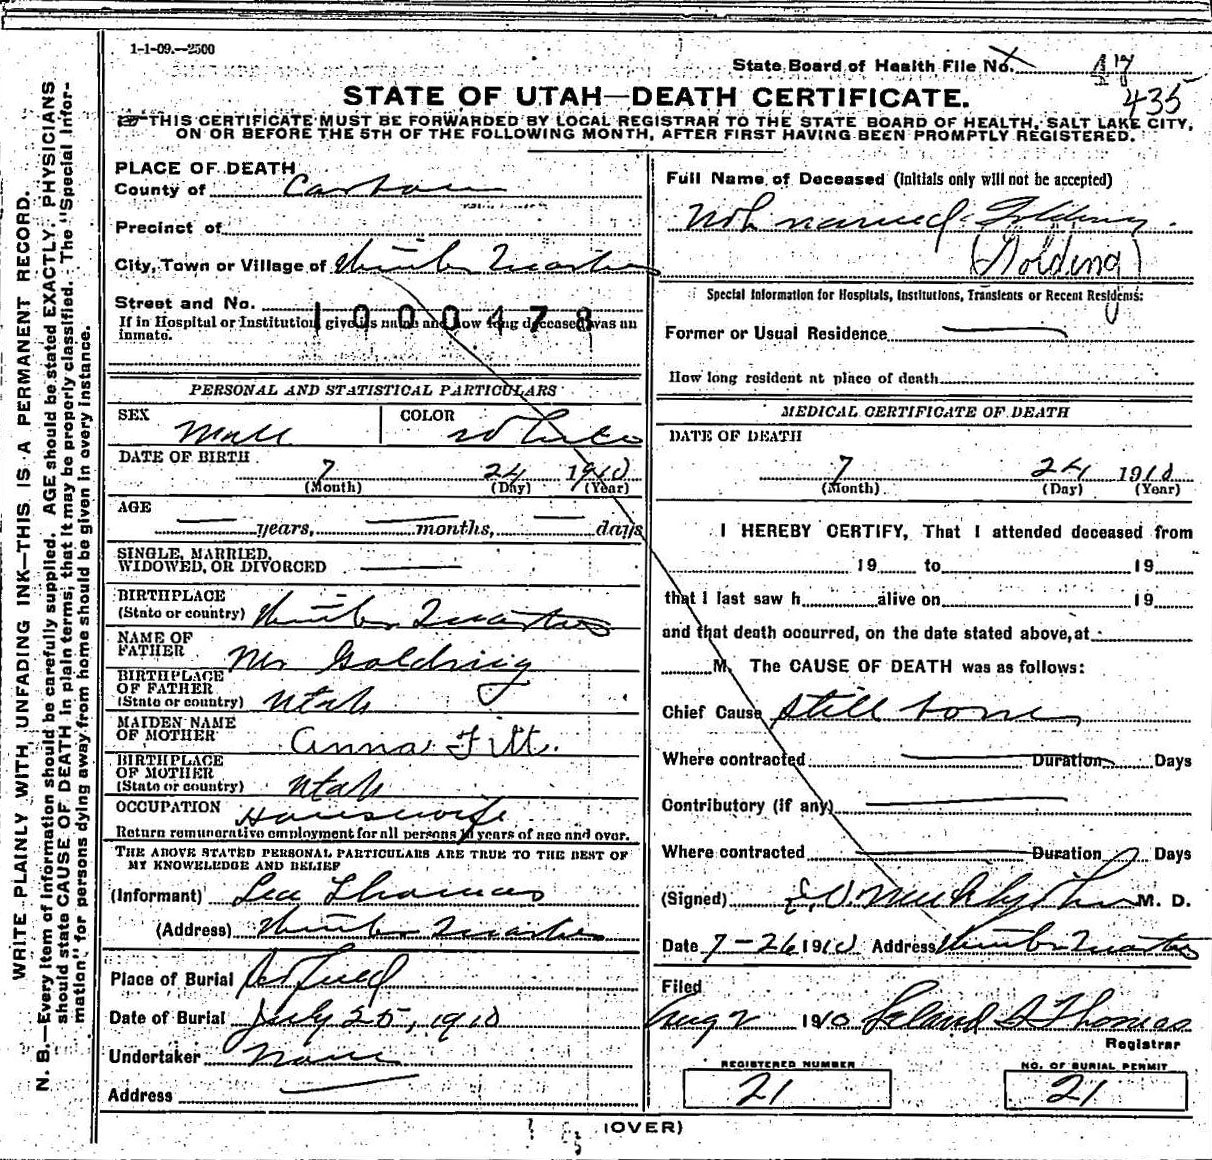 1-1-09.—2500
State Board of Health File No. 47
435
STATE OF UTAH—DEATH CERTIFICATE.
THIS CERTIFICATE MUST BE FORWARDED BY LOCAL REGISTRAR TO THE STATE BOARD OF HEALTH, SALT LAKE CITY,
ON OR BEFORE THE 5TH OF THE FOLLOWING MONTH, AFTER FIRST HAVING BEEN PROMPTLY REGISTERED.
WRITE PLAINLY WITH UNFADING INK—THIS IS A PERMANENT RECORD.
N. B.—Every item of information should be carefully supplied. AGE should be stated EXACTLY. PHYSICIANS
should state CAUSE OF DEATH in plain terms, that it may be properly classified. The "Special Infor-
mation" for persons dying away from home should be given in every instance.
PLACE OF DEATH
County of Carbon
Precinct of
City, Town or Village of Winter Quarters
Street and No.
1000478
If in Hospital or Institution, give its name and how long deceased was an
inmate.
PERSONAL AND STATISTICAL PARTICULARS
SEX Male COLOR White
DATE OF BIRTH
7 24 1910
(Month) (Day) (Year)
AGE
years, months, days
SINGLE, MARRIED,
WIDOWED, OR DIVORCED
BIRTHPLACE
(State or country) Winter Quarters
NAME OF
FATHER Mr Goldring
BIRTHPLACE
OF FATHER
(State or country) Utah
MAIDEN NAME
OF MOTHER Anna Fitt.
BIRTHPLACE
OF MOTHER
(State or country) Utah
OCCUPATION Housewife
Return remunerative employment for all persons 10 years of age and over.
THE ABOVE STATED PERSONAL PARTICULARS ARE TRUE TO THE BEST OF
MY KNOWLEDGE AND BELIEF
(Informant) Lea Thomas
(Address) Winter Quarters
Place of Burial Scofield
Date of Burial July 25, 1910
Undertaker None
Address
Full Name of Deceased (Initials only will not be accepted)
Not named. Golding
(Golding)
Special Information for Hospitals, Institutions, Transients or Recent Residents:
Former or Usual Residence
How long resident at place of death
MEDICAL CERTIFICATE OF DEATH
DATE OF DEATH
7 24 1910
(Month) (Day) (Year)
I HEREBY CERTIFY, That I attended deceased from
19 to 19
that I last saw h alive on 19
and that death occurred, on the date stated above, at
M. The CAUSE OF DEATH was as follows:
Chief Cause Still born
Where contracted Duration Days
Contributory (if any)
Where contracted Duration Days
(Signed) M. D.
Date 7-26 1910 Address Winter Quarters
Filed
Aug 2 1910 Leland S Thomas
Registrar
REGISTERED NUMBER
21
NO. OF BURIAL PERMIT
21
(OVER)